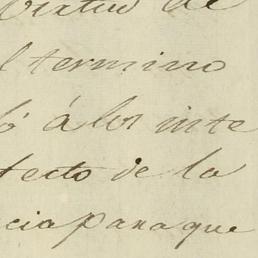 virtud de
l termino
ó á los inte
fecto de la
cia para que